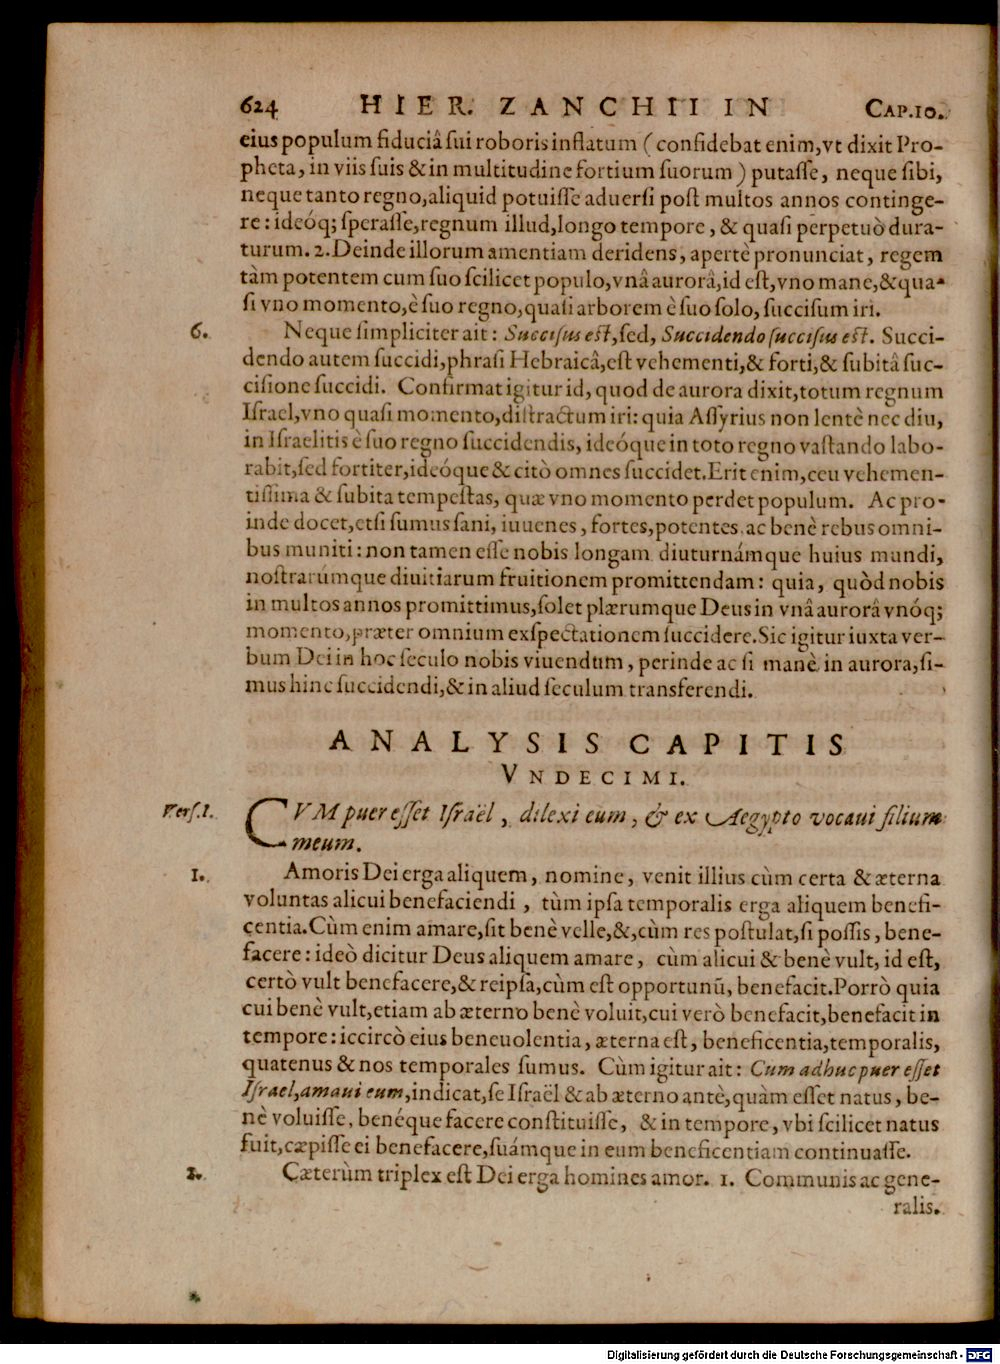 624 HIER. ZANCHII IN CAP.10.
eius populum fiduciâ sui roboris inflatum ( confidebat enim, vt dixit Pro-
pheta, in viis suis & in multitudine fortium suorum ) putasse, neque sibi,
neque tanto regno, aliquid potuisse aduersi post multos annos continge-
re : ideóq; sperasse, regnum illud, longo tempore, & quasi perpetuò dura-
turum. 2. Deinde illorum amentiam deridens, apertè pronunciat, regem
tàm potentem cum suo scilicet populo, vnâ aurorâ, id est, vno mane, & qua-
si vno momento, è suo regno, quasi arborem è suo solo, succisum iri.
6. Neque simpliciter ait : Succisus est, sed, Succidendo succisus est. Succi-
dendo autem succidi, phrasi Hebraicâ, est vehementi, & forti, & subitâ suc-
cisione succidi. Confirmat igitur id, quod de aurora dixit, totum regnum
Israel, vno quasi momento, distractum iri: quia Assyrius non lentè nec diu,
in Israelitis è suo regno succidendis, ideóque in toto regno vastando labo-
rabit, sed fortiter, ideóque & citò omnes succidet. Erit enim, ceu vehemen-
tissima & subita tempestas, quæ vno momento perdet populum. Ac pro-
inde docet, etsi sumus sani, iuuenes, fortes, potentes ac benè rebus omni-
bus muniti : non tamen esse nobis longam diuturnámque huius mundi,
nostrarúmque diuitiarum fruitionem promittendam : quia, quòd nobis
in multos annos promittimus, solet plærumque Deus in vnâ aurorâ vnóq;
momento, præter omnium exspectationem succidere. Sic igitur iuxta ver-
bum Dei in hoc seculo nobis viuendum, perinde ac si manè in aurora, si-
mus hinc succidendi, & in aliud seculum transferendi.
ANALYSIS CAPITIS
VNDECIMI.
Vers.1. CVM puer esset Israël, dilexi eum, & ex Aegypto vocaui filium
meum.
1. Amoris Dei erga aliquem, nomine, venit illius cùm certa & æterna
voluntas alicui benefaciendi, tùm ipsa temporalis erga aliquem benefi-
centia. Cùm enim amare, sit benè velle, &, cùm res postulat, si possis, bene-
facere : ideò dicitur Deus aliquem amare, cùm alicui & benè vult, id est,
certò vult benefacere, & reipsa, cùm est opportunũ, benefacit. Porrò quia
cui benè vult, etiam ab æterno benè voluit, cui verò benefacit, benefacit in
tempore : iccircò eius beneuolentia, æterna est, beneficentia, temporalis,
quatenus & nos temporales sumus. Cùm igitur ait : Cum adhuc puer esset
Israel, amaui eum, indicat, se Israël & ab æterno antè, quàm esset natus, be-
nè voluisse, benéque facere constituisse, & in tempore, vbi scilicet natus
fuit, cæpisse ei benefacere, suámque in eum beneficentiam continuasse.
2. Cæterùm triplex est Dei erga homines amor. 1. Communis ac gene-
ralis.
Digitalisierung gefördert durch die Deutsche Forschungsgemeinschaft - DFG